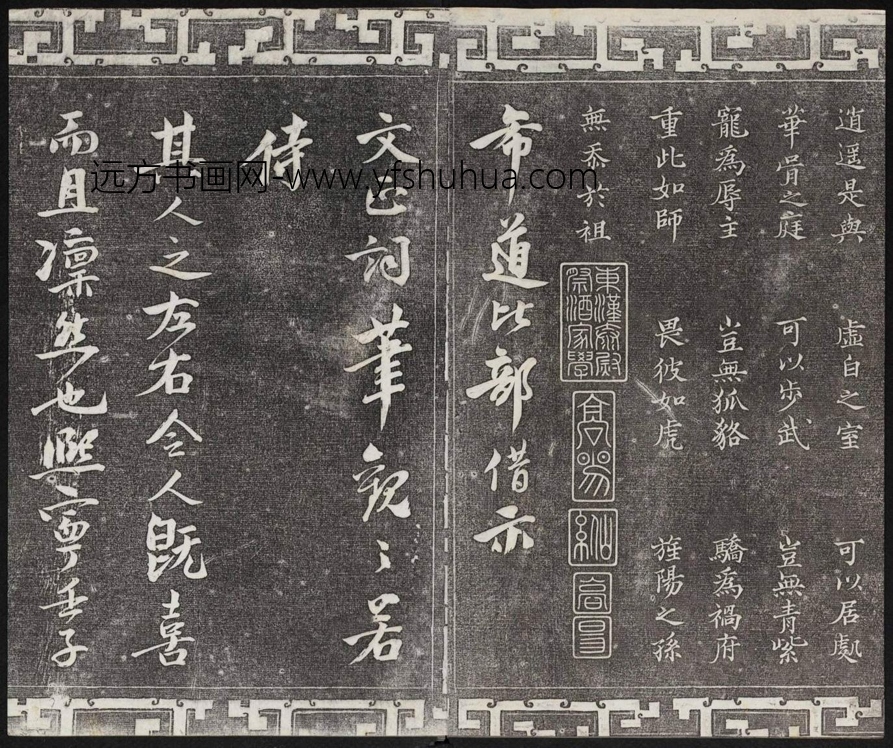 逍遥是與 虛白之室 可以居處
華胥之庭 可以步武 豈無青紫
寵為辱主 豈無狐貉 驕為禍府
重此如師 畏彼如虎 旌陽之孫
無忝於祖
東漢泰尉祭酒家學
許
希道比部借示
文正詞筆觀〻若
侍
其人之左右令人既喜
而且凜然也熙寧壬子
远方书画网 www.yfshuhua.com